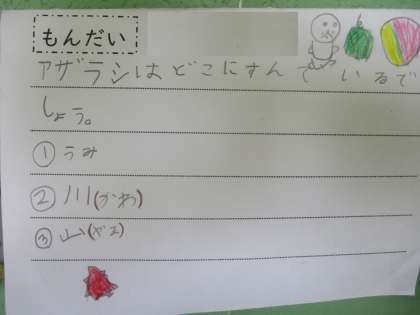 もんだい
アザラシはどこにすんでいるで
しょう。
①うみ
②川(かわ)
③山(やま)